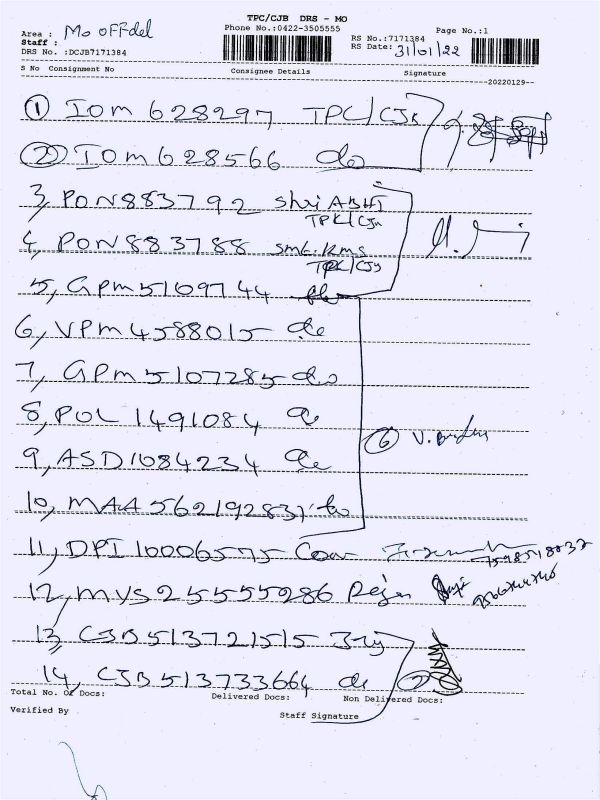 TPC/CJB DRS - MO
Phone No.:0422-3505555
Page No.:1
Area : Mo OFFdel
Staff :
DRS No. :DCJB7171384
RS No.:7171384
RS Date: 31/01/22
S No Consignment No Consignee Details Signature
--20220129--
1 IOM 628297 TPC/CJB
2 IOM 628566 do
3, PON883792 Shri ABHI
TPC/CJB
4, PON883788 smt. Rms
TPC/CJB
5, GPM5109744 do
6, VPM4588015 do
7, GPM5107285 do
8, POL 1491084 do
9, ASD1084234 do
6
10, MAA562192831 do
11, DPI 10006575
12, MYS25555286
13, CJB513721515
14, CJB513733664 do 2
Total No. Of Docs: Delivered Docs: Non Delivered Docs:
Verified By
Staff Signature